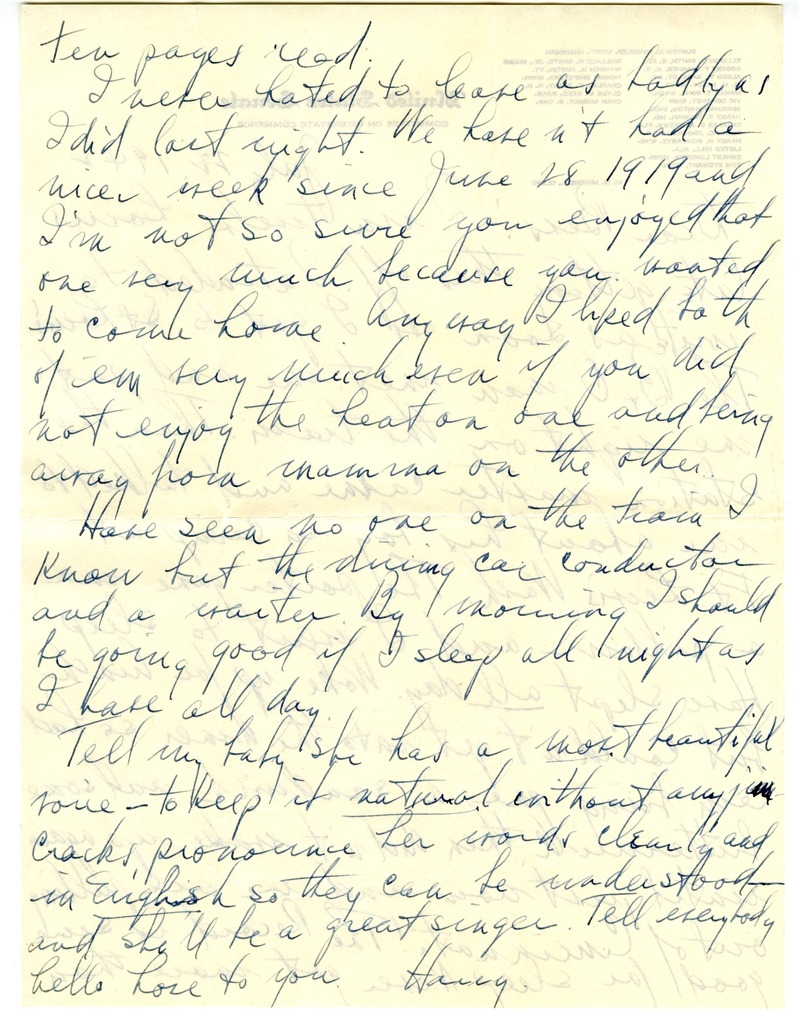 ten pages read.
I never hated to leave as badly as
I did last night. We haven't had a
nicer week since June 28 1919 and
I'm not so sure you enjoyed that
one very much because you wanted
to come home. Anyway I liked both
of em very much even if you did
not enjoy the heat on one and being
away from mamma on the other.
Have seen no one on the train I
know but the dining car conductor
and a waiter. By morning I should
be going good if I sleep all night as
I have all day.
Tell my baby she has a most beautiful
voice - to keep it natural without any jim
cracks, pronounce her words clearly and
in English so they can be understood -
and she'll be a great singer. Tell everybody
hello love to you. Harry.